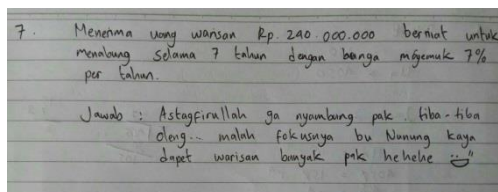 7. Menerima uang warisan Rp. 240.000.000 berniat untuk
menabung selama 7 tahun dengan bunga majemuk 7%
per tahun.
Jawab : Astagfirullah ga nyambung pak. tiba-tiba
oleng... malah fokusnya bu Nunung kaya
dapet warisan banyak pak hehehe